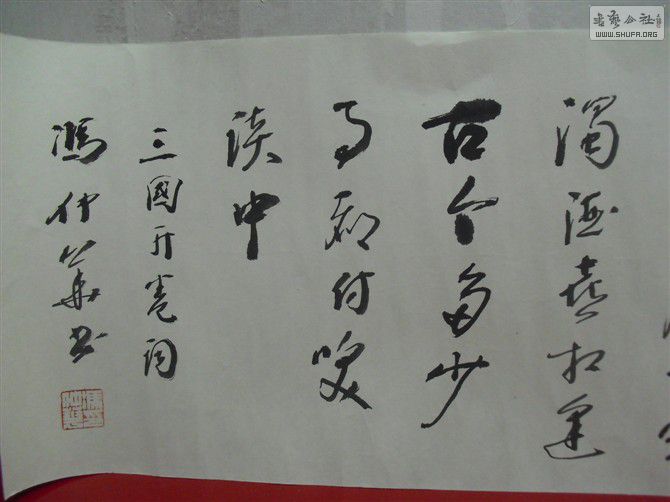 濁酒喜相逢
古今多少
事都付笑
談中
三國开卷词
馮仲華书
書藝公社
WWW.SHUFA.ORG